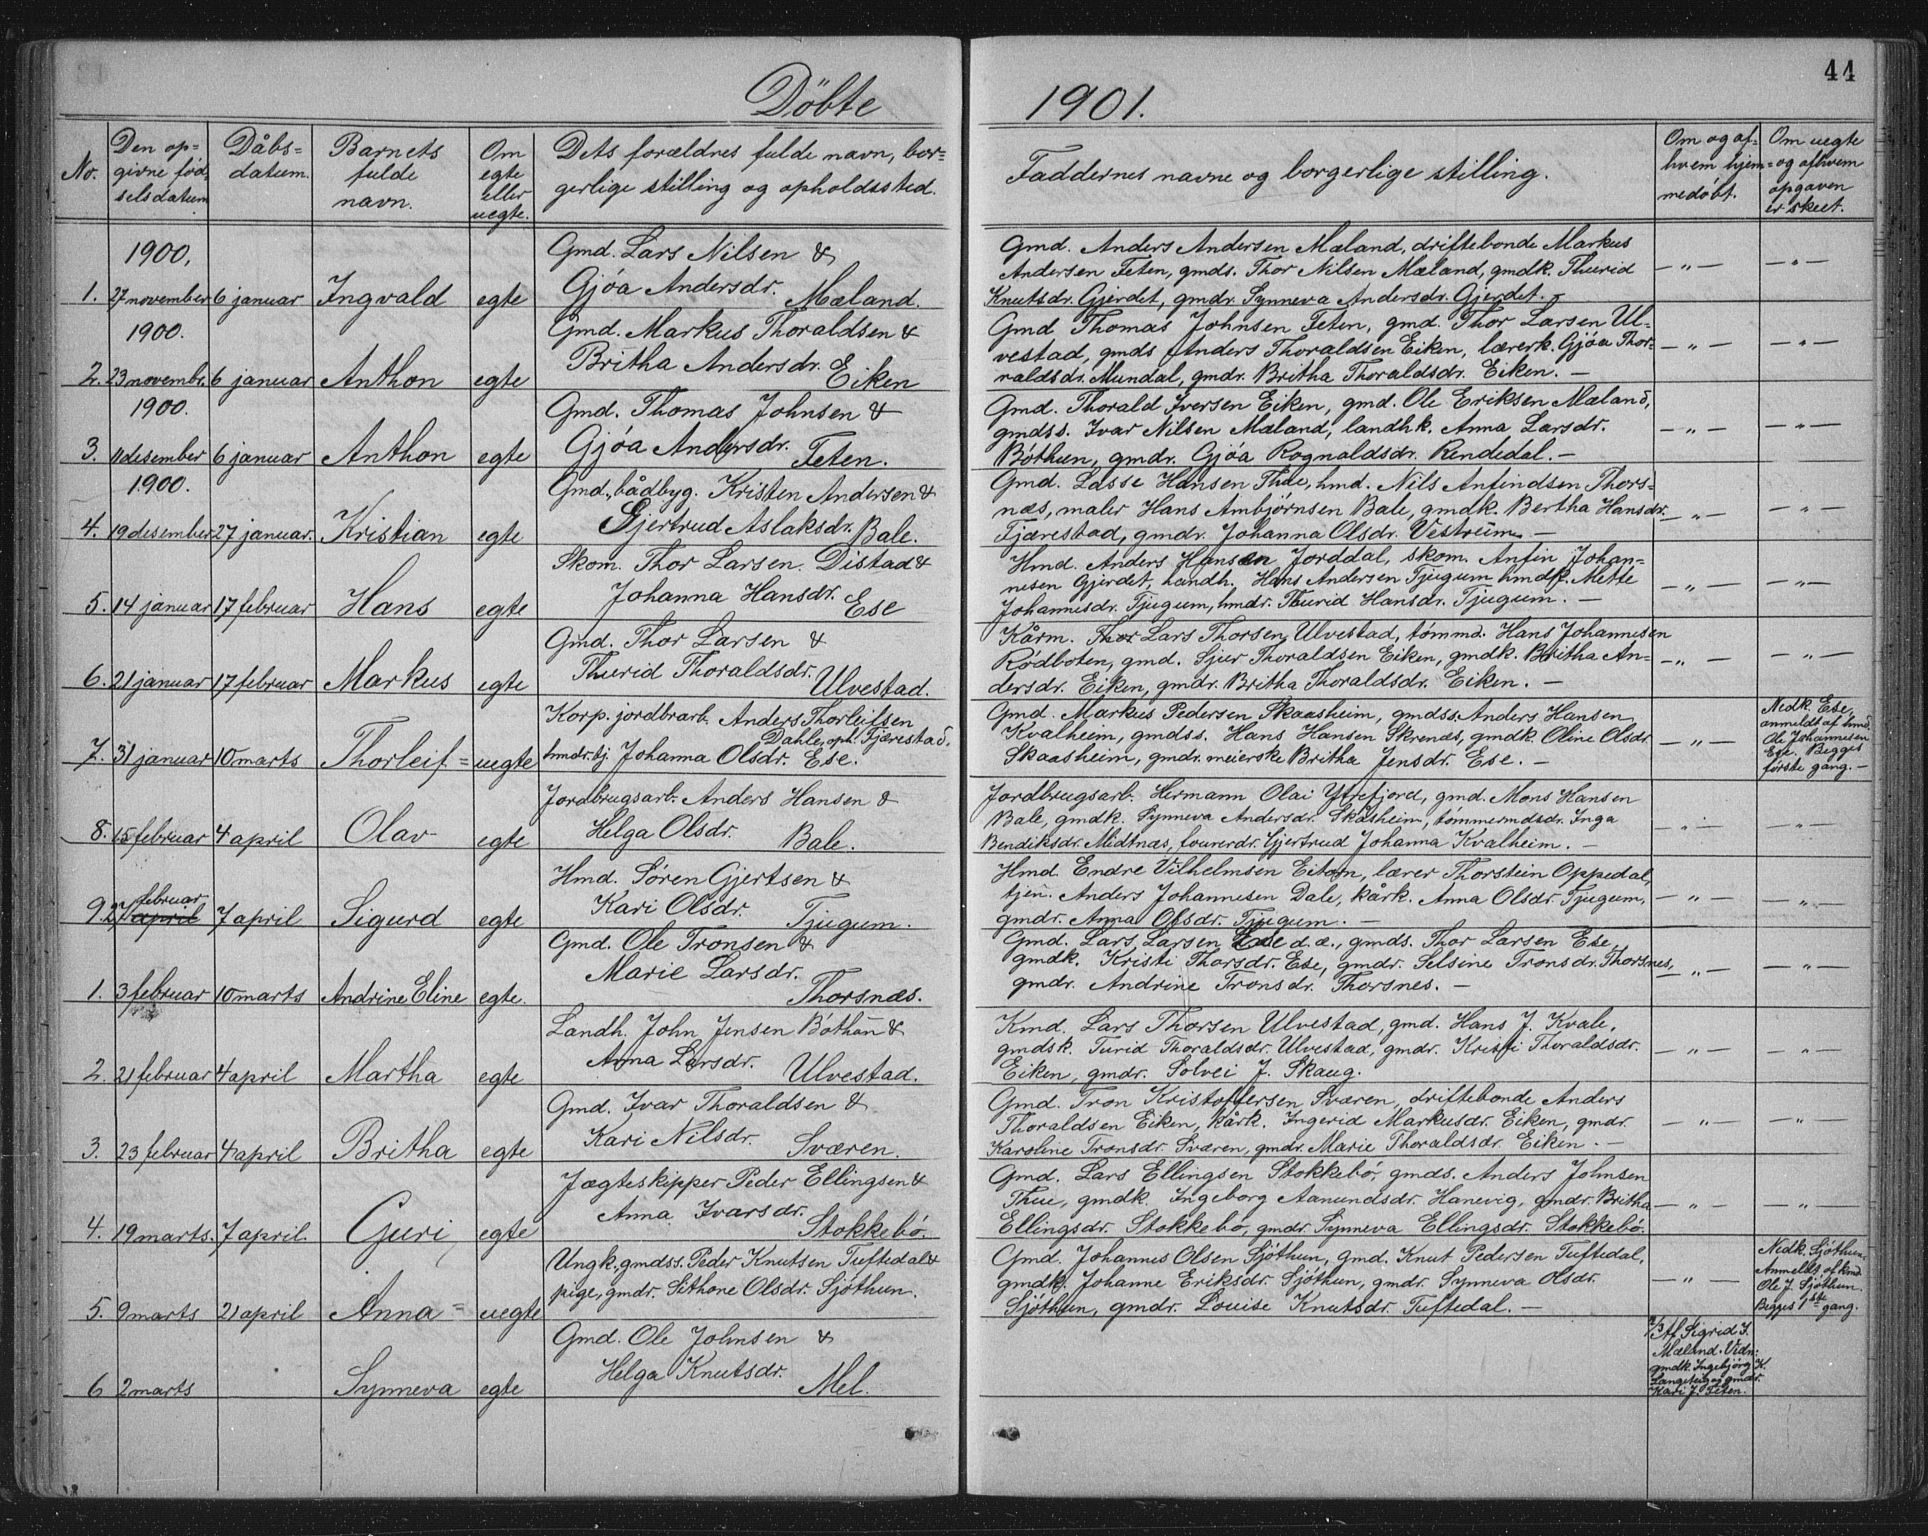 44
Döbte 1901.
No.
Den op-
givne fød-
selsdatum
Dåbs-
datum.
Barnets
fulde
navn.
Om
egte
eller
uegte.
Dets forældres fulde navn, bor-
gerlige stilling og opholdssted.
Faddernes navne og borgerlige stilling.
Om og af
hvem hjem-
medøbt.
Om uegte
og afhvem
opgaven
er skeet.
1900.
1. 27 november 6 januar Ingvald egte
Gmd. Lars Nilsen &
Gjøa Andersdr. Mæland.
Gmd. Anders Andersen Mæland, driftebonde Markus
Andersen Feten, gmds. Thor Nilsen Mæland, gmdk. Thurid
Knutsdr. Gjerdet, gmdr. Synneva Andersdr. Gjerdet. —
— " — — " —
1900.
2. 23 novembr. 6 januar Anthon egte
Gmd. Markus Thoraldsen &
Britha Andersdr. Eiken
Gmd Thomas Johnsen Feten, gmd. Thor Larsen Ul-
vestad, gmds Anders Thoraldsen Eiken, lærerk. Gjøa Thor-
valdsdr. Mundal, gmdr. Britha Thoraldsdr. Eiken. —
— " — — " —
1900.
3. 11 desember 6 januar Anthon egte
Gmd. Thomas Johnsen &
Gjøa Andersdr. Feten.
Gmd. Thorald Iversen Eiken, gmd. Ole Eriksen Mæland,
gmdss. Ivar Nilsen Mæland, landhk. Anna Larsdr.
Bøthun, gmdr. Gjøa Rognaldsdr. Rendedal. —
— " — — " —
1900.
4. 19 desember 27 januar. Kristian egte
Gmd., bådbyg. Kristen Andersen &
Gjertrud Aslaksdr. Bale.
Gmd. Lasse Hansen Thue, hmd. Nils Anfindsen Thors-
næs, maler Hans Ambjørnsen Bale, gmdk. Bertha Hansdr.
Fjærestad, gmdr. Johanna Olsdr. Vestreim —
— " — — " —
5. 14 januar 17 februar Hans egte
Skom. Thor Larsen Distad &
Johanna Hansdr. Ese
Hmd. Anders Hansen Jorddal, skom. Anfin Johan-
nesen Gjerdet, handh. Hans Andersen Tjugum hmdk. Mette
Johannesdr. Tjugum, hmdr. Thurid Hansdr. Tjugum. —
— " — — " —
6. 21 januar 17 februar Markus egte
Gmd. Thor Larsen &
Thurid Thoraldsdr. Ulvestad.
Kårm. Thor Lars Thorsen Ulvestad, tømmd. Hans Johannesen
Rødboten, gmd. Sjur Thoraldsen Eiken, gmdk. Britha An-
dersdr. Eiken, gmdr. Britha Thoraldsdr. Eiken. —
— " — — " —
7. 31 januar 10 marts Thorleif = uegte
Korp. jordbrarb. Anders Thorleifsen
Dahle, oph. Fjærestad.
hmdr. tj. Johanna Olsdr. Ese.
Gmd. Markus Pedersen Skaasheim, gmdss. Anders Hansen
Kvalheim, gmdss. Hans Hansen Skrenæs, gmdk. Oline Olsdr
Skaasheim, gmdr. meierske Britha Jensdr. Ese. —
— " —
Nedk. Ese,
anmeldt af hmd
Ole Johannesen
Ese. Begges
første gang. —
8. 15 februar 4 april Olav egte
Jordbrugsarb. Anders Hansen &
Helga Olsdr. Bale.
Jordbrugsarb. Hermann Olai Ytrefjord, gmd. Mons Hansen
Bale, gmdk. Synneva Andersdr. Skåsheim, tømmermdsdr. Inga
Bendiksdr. Midtnæs, fourerdr. Gjertrud Johanna Kvalheim. —
— " — — " —
9. 27 april februar 7 april Sigurd egte
Hmd. Søren Gjertsen &
Kari Olsdr. Tjugum.
Hmd. Endre Vilhelmsen Eitorn, lærer Thorstein Oppedal,
tjen. Anders Johannesen Dale, kårk. Anna Olsdr. Tjugum,
gmdr. Anna Olsdr. Tjugum. —
— " — — " —
1. 3 februar 10 marts Andrine Eline egte.
Gmd. Ole Tronsen &
Marie Larsdr. Thorsnæs.
Gmd. Lars Larsen Ese d. æ., gmds. Thor Larsen Ese,
gmdk. Kristi Thorsdr. Ese, gmdr. Selsine Tronsdr. Thorsnes,
gmdr. Andrine Tronsdr. Thorsnes. —
— " — — " —
2. 21 februar 4 april Martha egte
Landh. John Jensen Bøthun &
Anna Larsdr. Ulvestad.
Kmd. Lars Thorsen Ulvestad, gmd. Hans J. Kvale,
gmdsk. Turid Thoraldsdr. Ulvestad, gmdr. Kristi Thoraldsdr.
Eiken, gmdr. Solvei J. Skaug.
— " — — " —
3. 23 februar 4 april Britha egte
Gmd. Ivar Thoraldsen &
Kari Nilsdr. Sværen.
Gmd. Tron Kristoffersen Sværen, driftebonde Anders
Thoraldsen Eiken, kårk. Ingerid Markusdr. Eiken, gmdr.
Karoline Tronsdr. Sværen, gmdr. Marie Thoraldsdr. Eiken. —
— " — — " —
4. 19 marts. 7 april. Guri egte
Jægteskipper Peder Ellingsen &
Anna Ivarsdr. Stokkebø.
Gmd. Lars Ellingsen Stokkebø, gmds. Anders Johnsen
Thue, gmdk. Ingeborg Aamundsdr. Hanevig, gmdr. Britha
Ellingsdr. Stokkebø, gmdr. Synneva Ellingsdr. Stokkebø.
— " — — " —
5. 9 marts 21 april Anna = uegte
Ungk. gmdss. Peder Knutsen Tuftedal &
pige, gmdr. Sithone Olsdr. Sjøthun.
Gmd. Johannes Olsen Sjøthun, gmd. Knut Pedersen Tuftedal,
gmdk. Johanne Eriksdr. Sjøthun, gmdr. Synneva Olsdr.
Sjøthun, gmdr. Louise Knutsdr. Tuftedal. —
— " —
Nedk. Sjøthun.
Anmeldt af hmd
Ole J. Sjøthun.
Begges 1ste gang.
6 2 marts Synneva egte
Gmd. Ole Johnsen &
Helga Knutsdr. Mel.
Af Sigrid I.
Mæland. Vidn:
gmdk. Ingebjørg K.
Langeteig og gmdr.
Kari J. Feten.